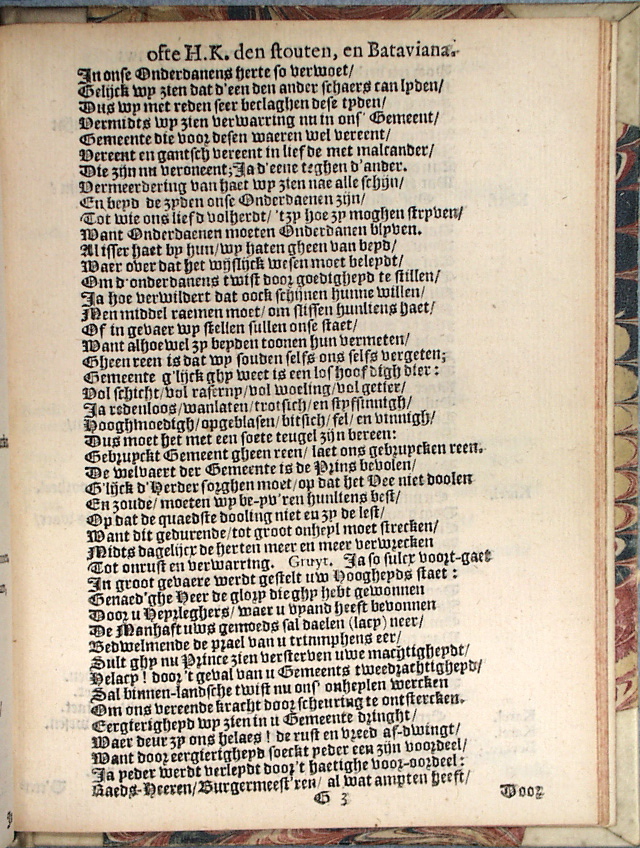 ofte H.K. den stouten, en Bataviana.
In onse Onderdanens herte so verwoet/
Gelijck wy zien dat d'een den ander schaers can lyden/
Dus wy met reden seer beclaghen dese tyden/
Vermidts wy zien verwarring nu in ons' Gemeent/
Gemeente die voor desen waeren wel vereent/
Vereent en gantsch vereent in liefde met malcander/
Die zijn nu veroneent; Ja d'eene teghen d'ander.
Vermeerdering van haet wy zien nae alle schijn/
En beyd de zyden onse Onderdaenen zijn/
Tot wie ons liefd volherdt/ 'tzy hoe zy moghen stryven/
Want Onderdaenen moeten Onderdanen blyven.
Al isser haet by hun/ wy haten gheen van beyd/
Waer over dat het wijslijck wesen moet beleydt/
Om d'onderdanens twist door goedigheyd te stillen/
Ja hoe verwildert dat oock schijnen hunne willen/
Men middel raemen moet/ om slissen hunliens haet/
Of in gevaer wy stellen sullen onse staet/
Want alhoewel zy beyden toonen hun vermeten/
Gheen reen is dat wy souden selfs ons selfs vergeten;
Gemeente g'lijck ghy weet is een los hoofdigh dier:
Vol schicht/ vol raserny/ vol woeling/ vol getier/
Ja redenloos/ wanlaten/ trotsich/ en styfsinnigh/
Hooghmoedigh/ opgeblasen/ bitsich/ fel/ en vinnigh/
Dus moet het met een soete teugel zijn bereen:
Gebruyckt Gemeent gheen reen/ laet ons gebruycken reen.
De welvaert der Gemeente is de Prins bevolen/
G'lijck d'Herder sorghen moet/ op dat het Vee niet doolen
En zoude/ moeten wy be-yv'ren hunliens best/
Op dat de quaedste dooling niet en zy de lest/
Want dit gedurende/ tot groot onheyl moet strecken/
Midts dagelijcx de herten meer en meer verwrecken
Tot onrust en verwarring. Gruyt. Ja so sulcx voort-gaet
In groot gevaere werdt gestelt uw Hoogheyds staet:
Genaed'ghe Heer de glory die ghy hebt gewonnen
Door u Heyrleghers/ waer u vyand heeft bevonnen
De Manhaft uws gemoeds sal daelen (lacy) neer/
Bedwelmende de prael van u triumphens eer/
Sult ghy nu Prince zien versterven uwe machtigheydt/
Helacy! door 't geval van u Gemeents tweedrachtigheyd/
Sal binnen-landsche twist nu ons' onheylen wercken
Om ons vereende kracht door scheuring te ontstercken.
Eergierigheyd wy zien in u Gemeente dringht/
Waer deur zy ons helaes! de rust en vreed af-dwingt/
Want door eergierigheyd soeckt yeder een zijn voordeel/
Ja yeder werdt verleydt door't haetighe voor-oordeel:
Raeds-Heeren/ Burgermeest'ren/ al wat ampten heeft/
G 3 Door